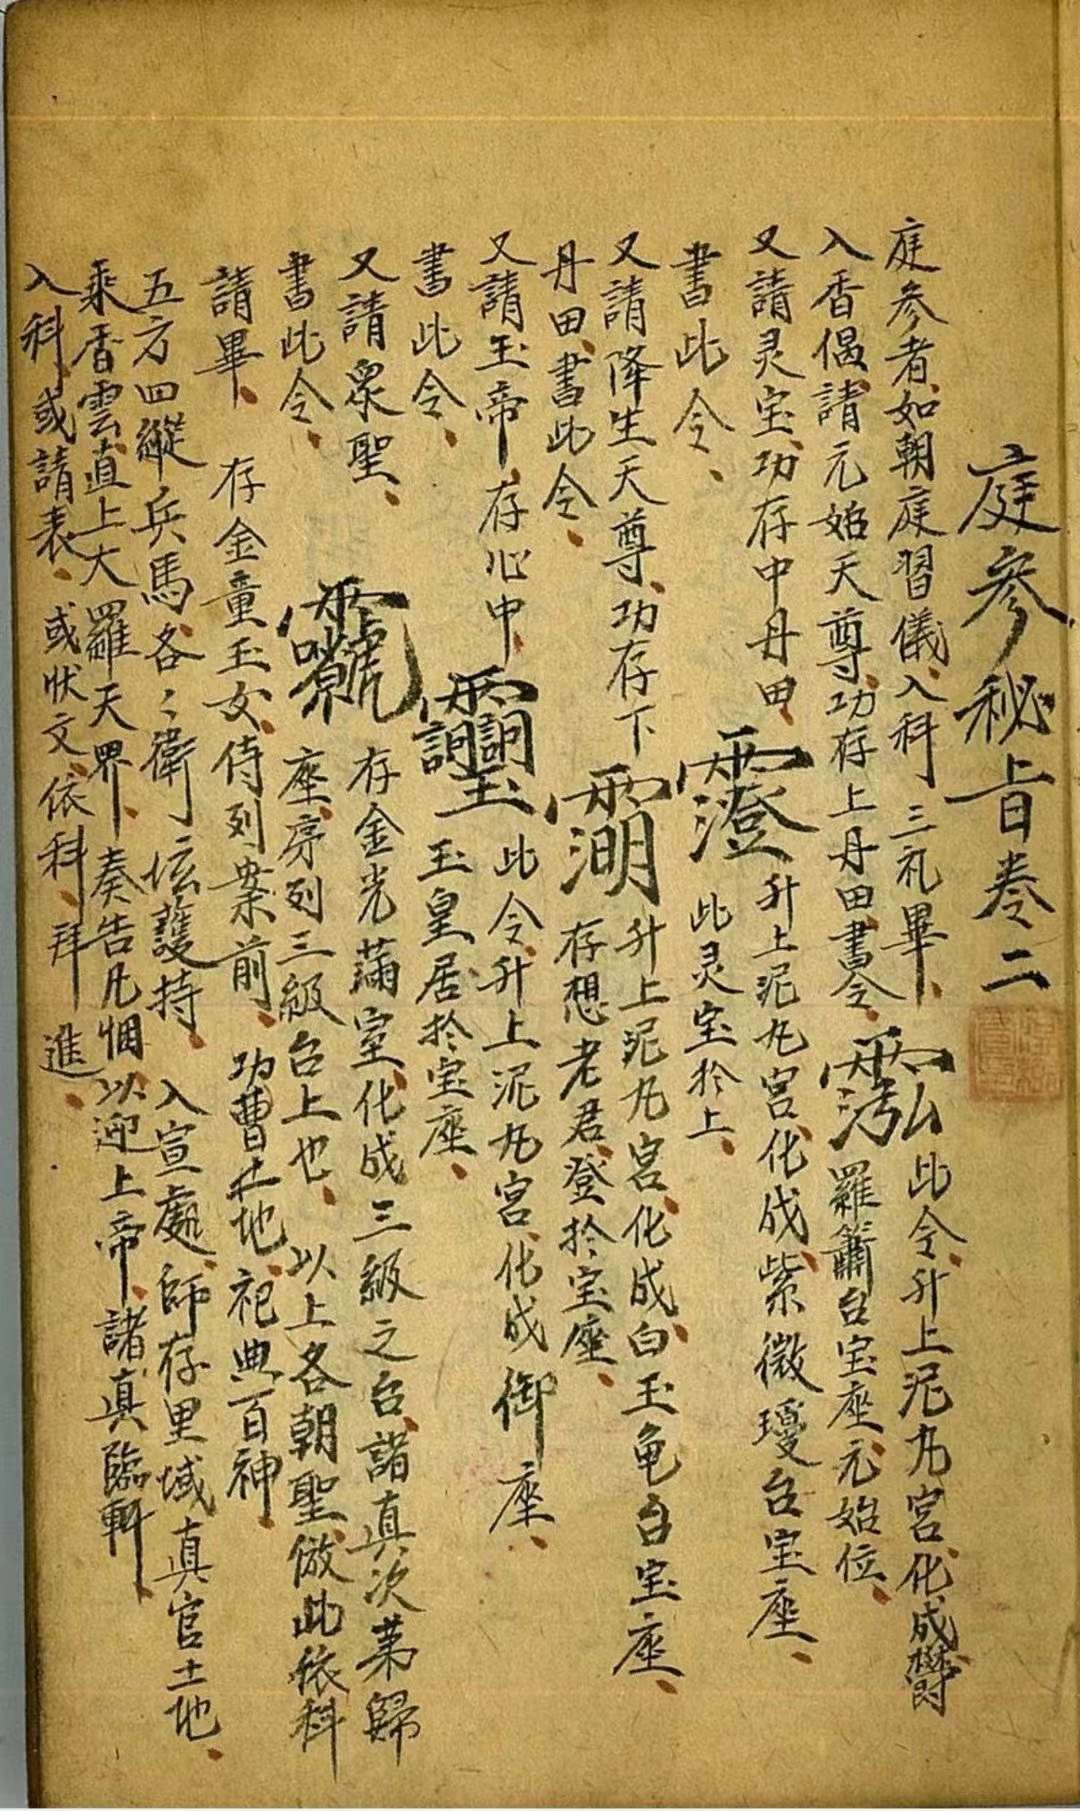 庭参秘旨卷二
庭参者、如朝庭習儀、入科、三礼畢、
入香偈、請元始天尊、功存上丹田、書令、此令、升上泥丸宮、化成欝
羅簫台宝座、元始位、
又請灵宝、功存中丹田、升上泥丸宮、化成紫微瓊台宝座、
書此令、此灵宝於上、
又請降生天尊、功存下升上泥丸宮、化成白玉亀台宝座、
丹田、書此令、存想老君、登於宝座、
又請玉帝、存心中、此令、升上泥丸宮、化成御座、
書此令、玉皇居於宝座、
又請眾聖、存金光滿室、化成三級之台、諸真次苐歸
書此令、座、序列三級台上也、以上各朝聖、倣此依科
請畢、存金童玉女、侍列案前、功曹土地、祀典百神、
五方四縱兵馬、各〻衛坛護持、入宣處、師存里域真官土地、
乘香雲、直上大羅天界、奏告凡悃、以迎上帝、諸真臨軒、
入科、或請表、或狀文、依科、拜進、